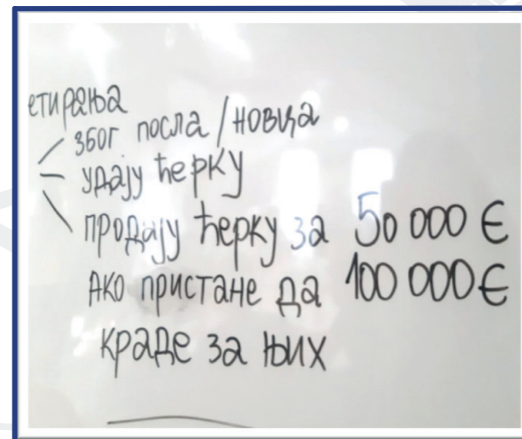 етирања
због посла / новца
удају ћерку
продају ћерку за 50 000 €
Ако пристане да 100 000 €
краде за њих